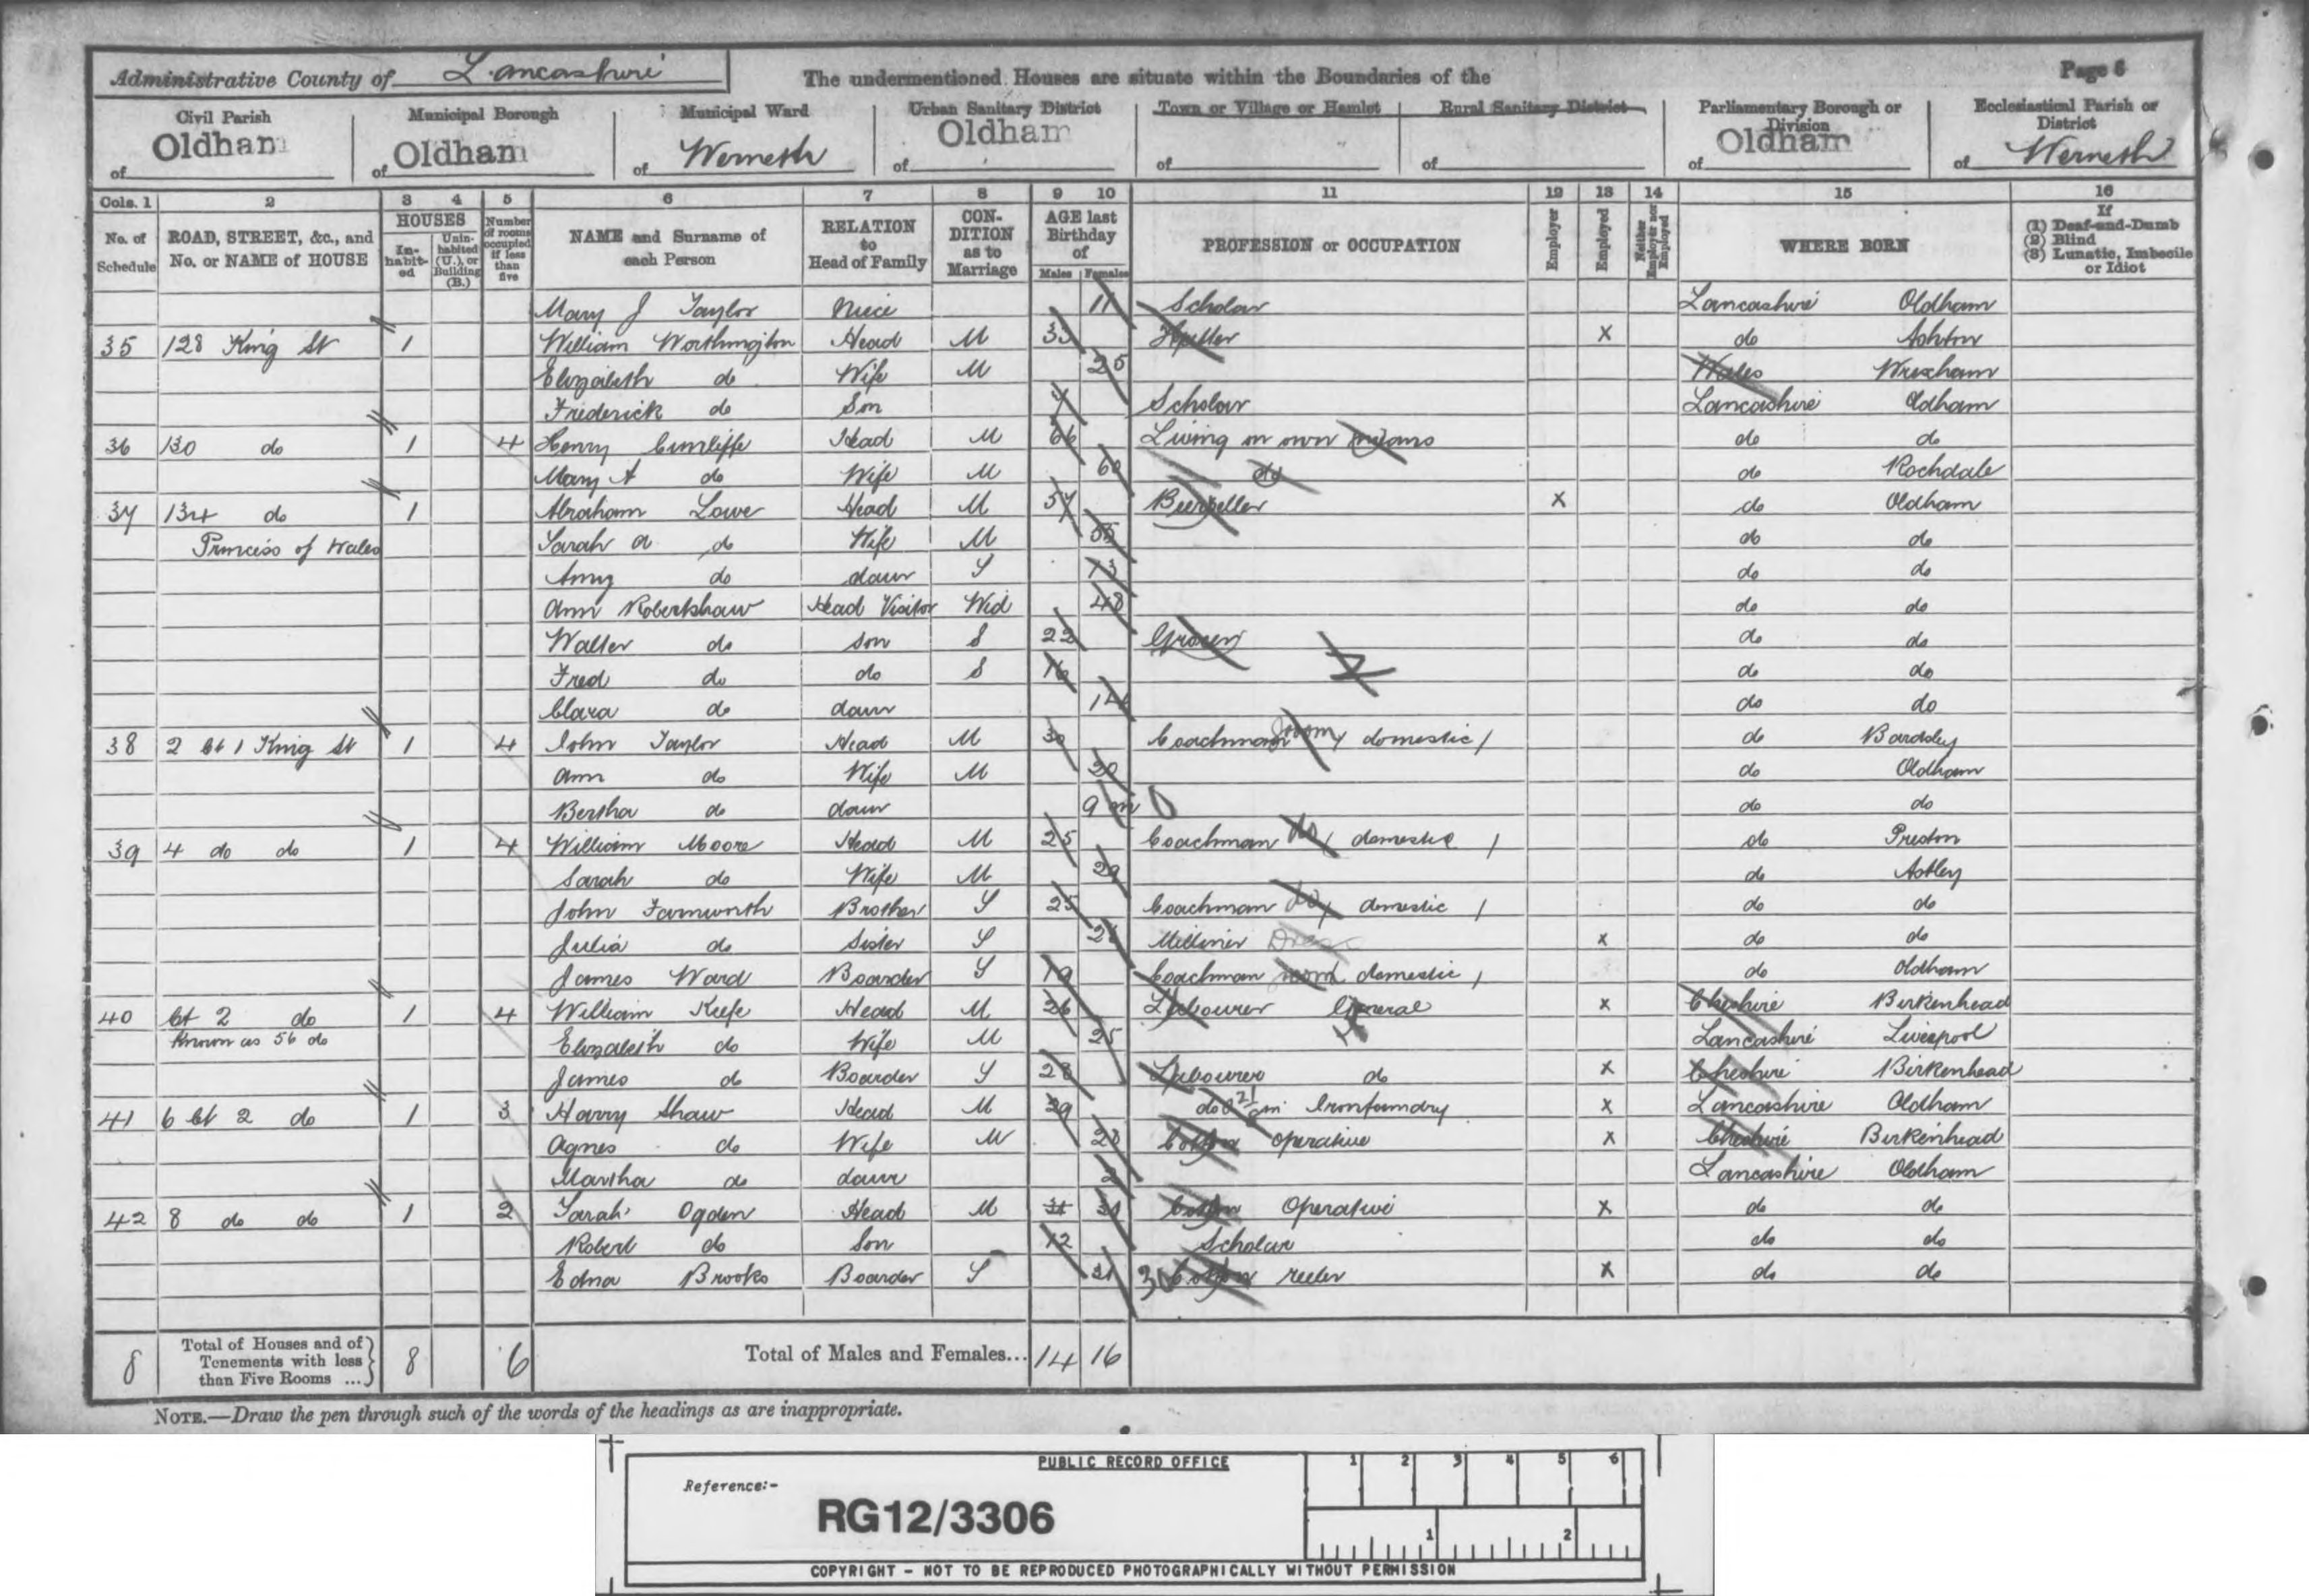 Administrative County of Lancashire The undermentioned Houses are situate within the Boundaries of the Page 6
Civil Parish Municipal Borough Municipal Ward Urban Sanitary District Town or Village or Hamlet Rural Sanitary District Parliamentary Borough or Division Ecclesiastical Parish or District
of Oldham of Oldham of Werneth of Oldham of of of Oldham of Werneth
Cols. 1 2 3 4 5 6 7 8 9 10 11 12 13 14 15 16
No. of Schedule ROAD, STREET, &c., and No. or NAME of HOUSE HOUSES Inhabited Uninhabited (U.), or Building (B.) Number of rooms occupied if less than five NAME and Surname of each Person RELATION to Head of Family CONDITION as to Marriage AGE last Birthday of Males Females PROFESSION or OCCUPATION Employer Employed Neither Employer nor Employed WHERE BORN If (1) Deaf-and-Dumb (2) Blind (3) Lunatic, Imbecile or Idiot
Mary J Taylor Niece 11 Scholar Lancashire Oldham
35 128 King St 1 William Worthington Head M 33 X do Ashton
Elizabeth do Wife M 25 Wales Wrexham
Frederick do Son Scholar Lancashire Oldham
36 130 do 1 4 Henry Cunliffe Head M 66 Living on own means do do
Mary A do Wife M 60 do do Rochdale
37 134 do 1 Abraham Lowe Head M 57 Beerseller X do Oldham
Princess of Wales Sarah A do Wife M 55 do do
Amy do daur S 13 do do
Ann Robertshaw Head Visitor Wid 48 do do
Walter do son S 22 Grocer do do
Fred do do S 16 do do
Clara do daur 14 do do
38 2 Ct 1 King St 1 4 John Taylor Head M 30 Coachman groom domestic / do Bardsley
Ann do Wife M 20 do Oldham
Bertha do daur 9 m do do
39 4 do do 1 4 William Moore Head M 25 Coachman do domestic / do Preston
Sarah do Wife M 29 do Astley
John Farnworth Brother S 25 Coachman do domestic / do do
Julia do Sister S Milliner Dress X do do
James Ward Boarder S 19 Coachman groom domestic / do Oldham
40 Ct 2 do 1 4 William Keefe Head M 26 Labourer General X Cheshire Birkenhead
Known as 56 do Elizabeth do Wife M 25 Lancashire Liverpool
James do Boarder S 28 Labourer do X Cheshire Birkenhead
41 6 Ct 2 do 1 3 Harry Shaw Head M 29 do in Ironfoundry X Lancashire Oldham
Agnes do Wife M 28 Cotton Operative X Cheshire Birkenhead
Martha do daur 2 Lancashire Oldham
42 8 do do 1 2 Sarah Ogden Head M 31 31 Cotton Operative X do do
Robert do Son 12 Scholar do do
Edna Brooks Boarder S 21 Cotton reeler X do do
8 Total of Houses and of Tenements with less than Five Rooms ... 8 6 Total of Males and Females... 14 16
NOTE.—Draw the pen through such of the words of the headings as are inappropriate.
PUBLIC RECORD OFFICE 1 2 3 4 5 6
Reference:-
RG12/3306
1 2
COPYRIGHT - NOT TO BE REPRODUCED PHOTOGRAPHICALLY WITHOUT PERMISSION